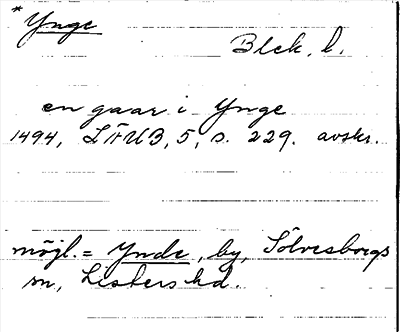 * Ynge
Blek. l.
en gaar i Ynge
1494, LÄUB, 5, s. 229. avskr.
möjl. = Ynde, by, Sölvesborgs
sn, Listers hd.